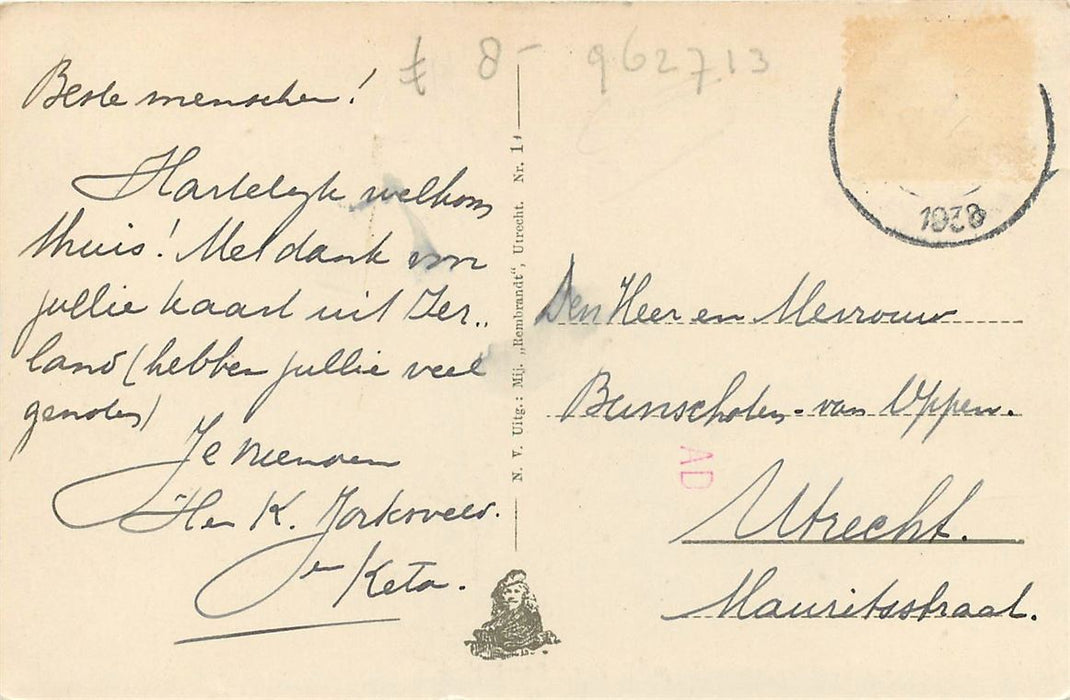 £ 8 - 962713
Beste menschen!
Hartelyk welkom
thuis! Met dank voor
jullie kaart uit Ier„
land (hebben jullie veel
genoten)
Je vrienden
K.
en Keta.
N. V. Uitg.: Mij. „Rembrandt“, Utrecht. Nr. 1
1938
Den Heer en Mevrouw
Bunschoten - van Uppen.
AD
Utrecht.
Mauritsstraat.